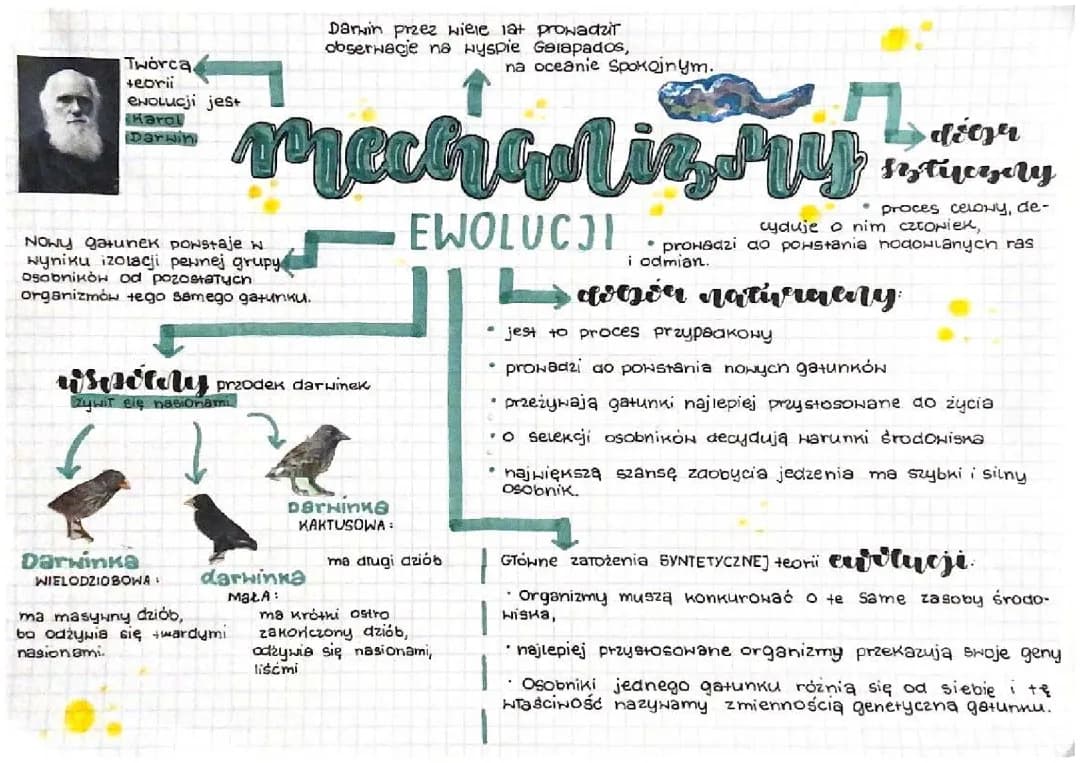 Darwin przez wiele lat prowadził
obserwacje na wyspie Galapados,
na oceanie Spokojnym.
Twórcą
teorii
ewolucji jest
Karol
Darwin
mechanizmy
EWOLUCJI
dobór
sztuczny
• proces celowy, de-
cyduje o nim człowiek,
• prowadzi do powstania hodowlanych ras
i odmian.
Nowy gatunek powstaje w
wyniku izolacji pewnej grupy
osobników od pozostałych
organizmów tego samego gatunku.
dobór naturalny:
• jest to proces przypadkowy
• prowadzi do powstania nowych gatunków
• przeżywają gatunki najlepiej przystosowane do życia
• o selekcji osobników decydują warunki środowiska
• największą szansę zdobycia jedzenia ma szybki i silny
osobnik.
wspólny przodek darwinek
żywił się nasionami
Darwinka
WIELODZIOBOWA:
ma masywny dziób,
bo odżywia się twardymi
nasionami.
darwinka
MAŁA:
ma krótki ostro
zakończony dziób,
odżywia się nasionami,
liśćmi
Darwinka
KAKTUSOWA:
ma długi dziób
Główne założenia SYNTETYCZNEJ teorii ewolucji:
• Organizmy muszą konkurować o te same zasoby środo-
wiska,
• najlepiej przystosowane organizmy przekazują swoje geny
• Osobniki jednego gatunku różnią się od siebie i tę
właściwość nazywamy zmiennością genetyczną gatunku.